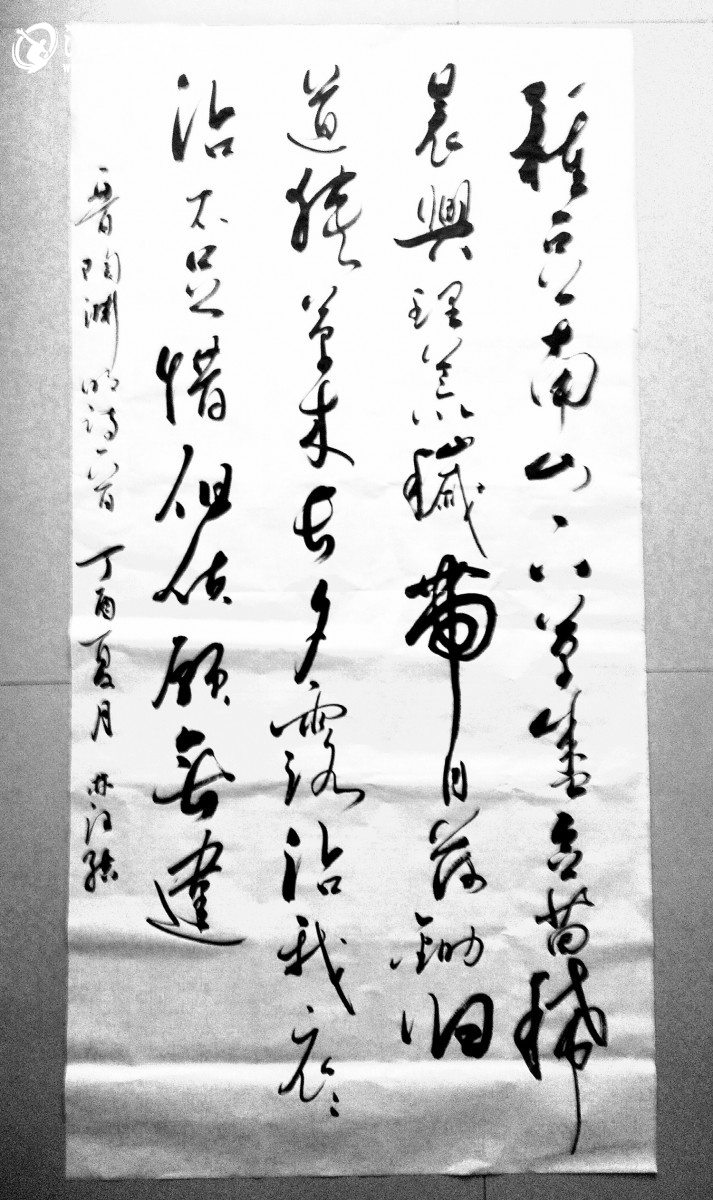 種豆南山下草盛豆苗稀
晨興理荒穢帶月荷鋤归
道狹草木長夕露沾我衣々
沾不足惜但使願無違
晋陶渊明诗一首 丁酉夏月